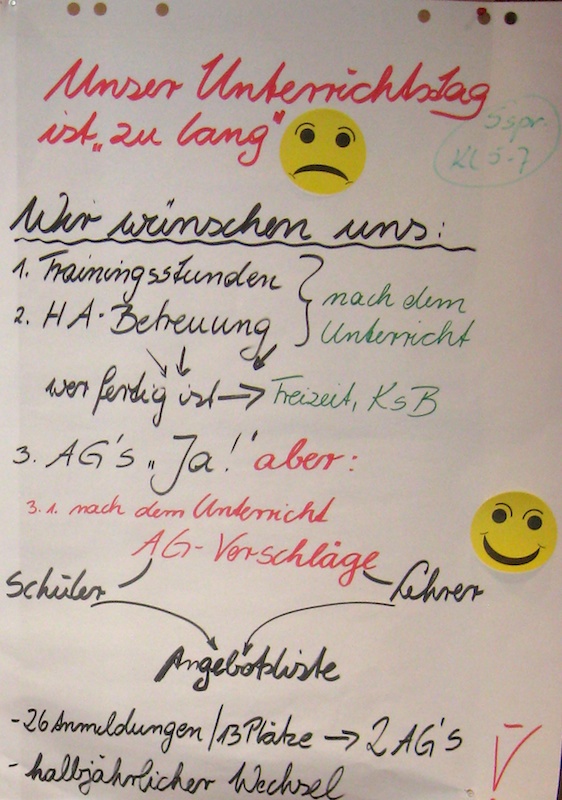 Unser Unterrichtstag
ist „zu lang"
Sspr.
Kl 5-7
Wir wünschen uns:
1. Trainingsstunden
2. HA-Betreuung
nach dem
Unterricht
wer fertig ist → Freizeit, KsB
3. AG's „Ja!" aber:
3.1. nach dem Unterricht
AG-Vorschläge
Schüler
Lehrer
Angebotsliste
- 26 Anmeldungen / 13 Plätze → 2 AG's
- halbjährlicher Wechsel